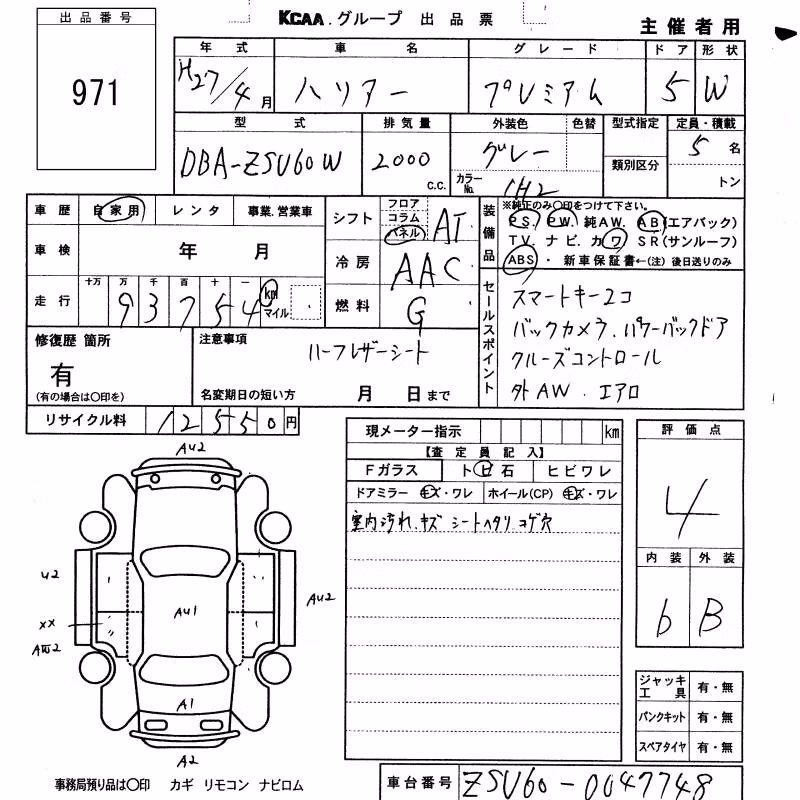 出品番号
971
KCAA.グループ 出品票
主催者用
年式 車名 グレード ドア 形状
H27/4月 ハリアー プレミアム 5 W
型式 排気量 外装色 色替 型式指定 定員・積載
DBA-ZSU60W 2000 C.C. グレー 類別区分 5名
カラーNo. 1H2 トン
車歴 自家用 レンタ 事業.営業車
車検 年 月
走行 十万 万 千 百 十 一
93754 km マイル
シフト フロア コラム パネル AT
冷房 AAC
燃料 G
装備品 ※純正のみ〇印をつけて下さい。
PS. PW. 純AW. AB(エアバック)
TV. ナビ. カワ SR(サンルーフ)
ABS・新車保証書←(注)後日送りのみ
セールスポイント
スマートキー2コ
バックカメラ.パワーバックドア
クルーズコントロール
外AW.エアロ
修復歴 箇所
有
(有の場合は〇印を)
注意事項
ハーフレザーシート
名変期日の短い方 月 日まで
リサイクル料 12550円
現メーター指示 km
【査定員記入】
Fガラス トビ石 ヒビワレ
ドアミラー キズ・ワレ ホイール(CP) キズ・ワレ
室内汚れ.キズ シートヘタリ コゲ穴
評価点
4
内装 外装
b B
AU2
U2
XX
AW2
AU1
AU2
A1
A2
ジャッキ 工具 有・無
パンクキット 有・無
スペアタイヤ 有・無
事務局預り品は〇印 カギ リモコン ナビロム
車台番号 ZSU60-0047748